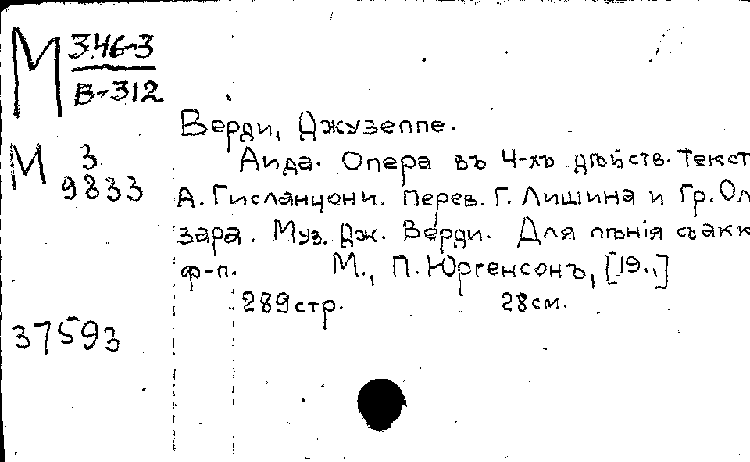 М 3.46-3
В-312
Верди, Джузеппе.
М 3
9833
Аида. Опера въ 4-хъ дѣйств. Текст
А. Гисланцони. Перев. Г. Лишина и Гр. Ол
зара. Муз. Дж. Верди. Для пѣнія съ акк
ф-п. М., П. Юргенсонъ, [19..]
289 стр. 28 см.
37593